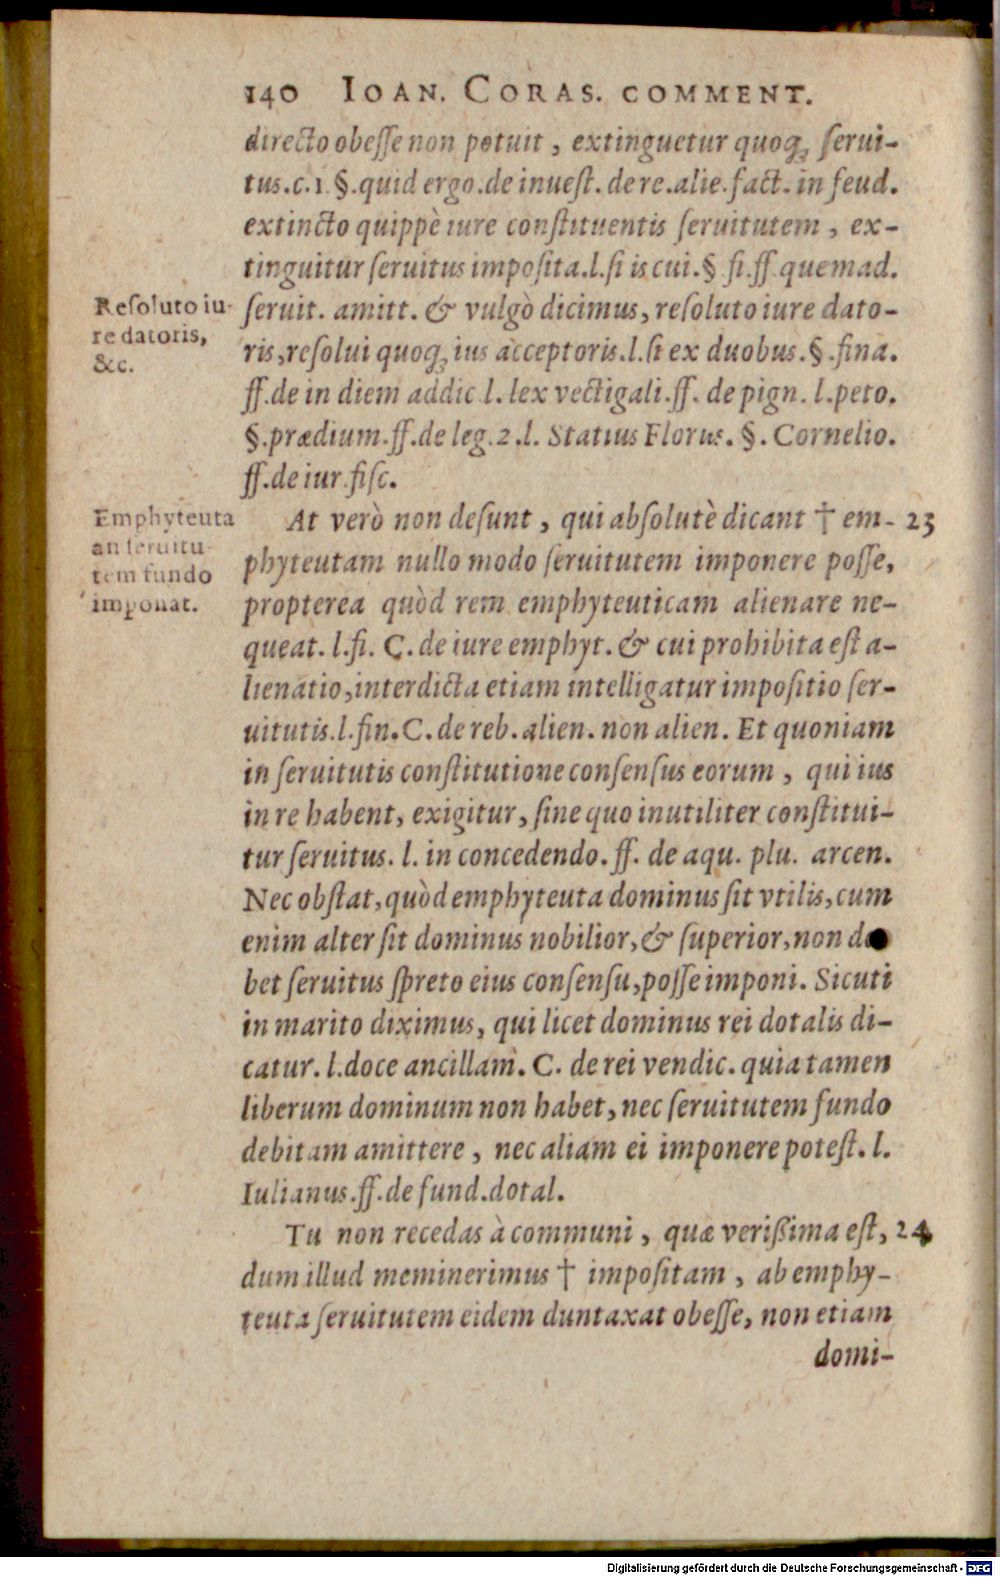 140 IOAN. CORAS. COMMENT.
directo obesse non potuit, extinguetur quoq; serui-
tus. c. 1. §. quid ergo. de inuest. de re. alie. fact. in feud.
extincto quippè iure constituentis seruitutem, ex-
tinguitur seruitus imposita. l. si is cui. §. fi. ff. quemad.
seruit. amitt. & vulgò dicimus, resoluto iure dato-
ris, resolui quoq; ius acceptoris. l. si ex duobus. §. fina.
ff. de in diem addic. l. lex vectigali. ff. de pign. l. peto.
§. prædium. ff. de leg. 2. l. Statius Florus. §. Cornelio.
ff. de iur. fisc.
Resoluto iu-
re datoris,
&c.
At verò non desunt, qui absolutè dicant † em- 23
phyteutam nullo modo seruitutem imponere posse,
propterea quòd rem emphyteuticam alienare ne-
queat. l. fi. C. de iure emphyt. & cui prohibita est a-
lienatio, interdicta etiam intelligatur impositio ser-
uitutis. l. fin. C. de reb. alien. non alien. Et quoniam
in seruitutis constitutione consensus eorum, qui ius
in re habent, exigitur, sine quo inutiliter constitui-
tur seruitus. l. in concedendo. ff. de aqu. plu. arcen.
Nec obstat, quòd emphyteuta dominus sit vtilis, cum
enim alter sit dominus nobilior, & superior, non de
bet seruitus spreto eius consensu, posse imponi. Sicuti
in marito diximus, qui licet dominus rei dotalis di-
catur. l. doce ancillam. C. de rei vendic. quia tamen
liberum dominum non habet, nec seruitutem fundo
debitam amittere, nec aliam ei imponere potest. l.
Iulianus. ff. de fund. dotal.
Emphyteuta
an seruitu-
tem fundo
imponat.
Tu non recedas à communi, quæ verißima est, 24
dum illud meminerimus † impositam, ab emphy-
teuta seruitutem eidem duntaxat obesse, non etiam
domi-
Digitalisierung gefördert durch die Deutsche Forschungsgemeinschaft - DFG